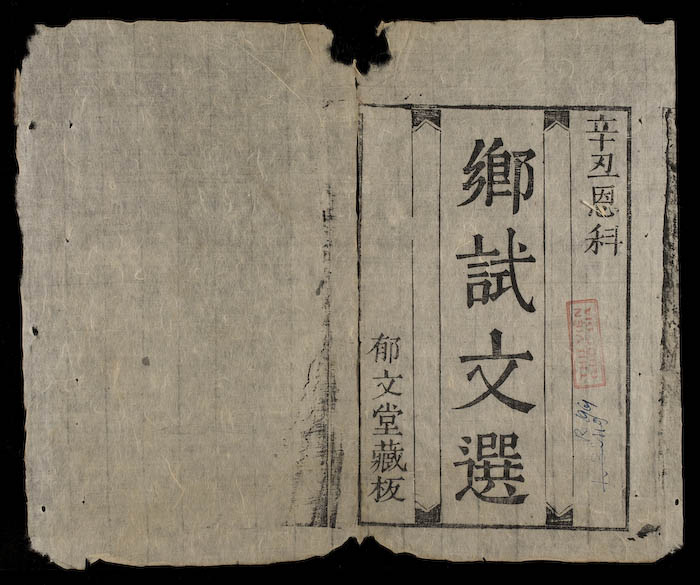 辛丑恩科
鄉試文選
郁文堂藏板